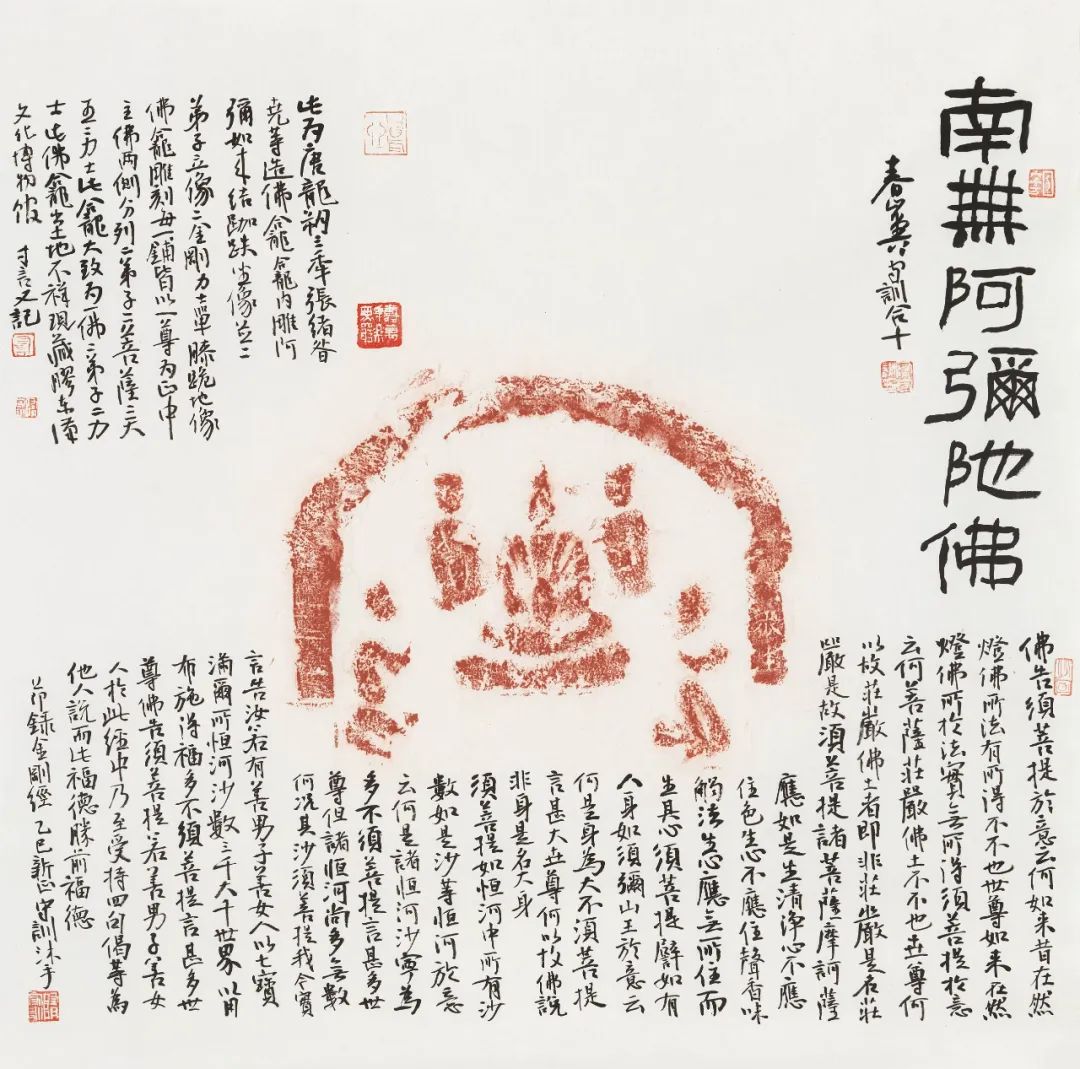 南無阿彌陀佛
春山黄守訓合十
佛告須菩提於意云何如来昔在然
燈佛所法有所得不不也世尊如来在然
燈佛所於法實无所得須菩提於意
云何菩薩莊嚴佛土不不也世尊何
以故莊嚴佛土者即非莊嚴是名莊
嚴是故須菩提諸菩薩摩訶薩
應如是生清淨心不應
住色生心不應住聲香味
觸法生心應无所住而
生其心須菩提譬如有
人身如須彌山王於意云
何是身為大不須菩提
言甚大世尊何以故佛說
非身是名大身
須菩提如恒河中所有沙
數如是沙等恒河於意
云何是諸恒河沙寧為
多不須菩提言甚多世
尊但諸恒河尚多无數
何況其沙須菩提我今實
言告汝若有善男子善女人以七寶
滿爾所恒河沙數三千大千世界以用
布施得福多不須菩提言甚多世
尊佛告須菩提若善男子善女
人於此經中乃至受持四句偈等為
他人說而此福德勝前福德
節錄金剛經 乙巳新正守訓沐手
此为唐龍朔三年張緒眘
堯等造佛龕龕內雕阿
彌如来結跏趺坐像並二
弟子立像二金剛力士單膝跪地像
佛龕雕刻每一鋪皆以一尊为正中
主佛两側分列二弟子二菩薩二天
王二力士此龕大致为一佛二弟子二力
士此佛龕出土地不祥現藏膠东漢
文化博物馆 寸言又記